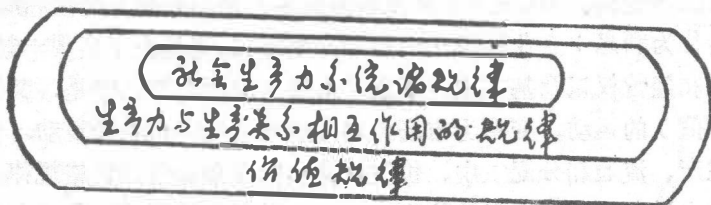 社会生产力系统诸规律
生产力与生产关系相互作用的规律
价值规律